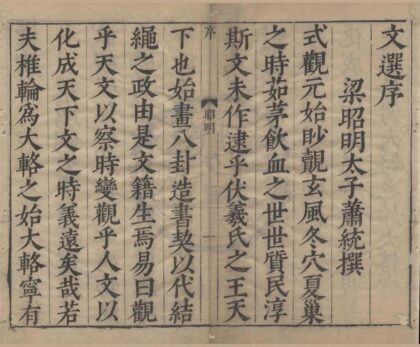 文選序
梁昭明太子蕭統撰
式觀元始眇覿玄風冬穴夏巢
之時茹茅飲血之世世質民淳
斯文未作逮乎伏羲氏之王天
序
昭明
一
下也始畫八卦造書契以代結
繩之政由是文籍生焉易曰觀
乎天文以察時變觀乎人文以
化成天下文之時義遠矣哉若
夫椎輪為大輅之始大輅寧有